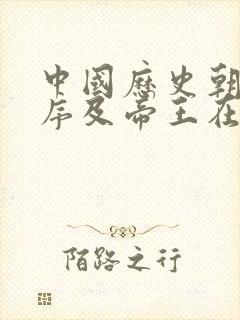 中國歷史朝
序及帝王在
陌路之行